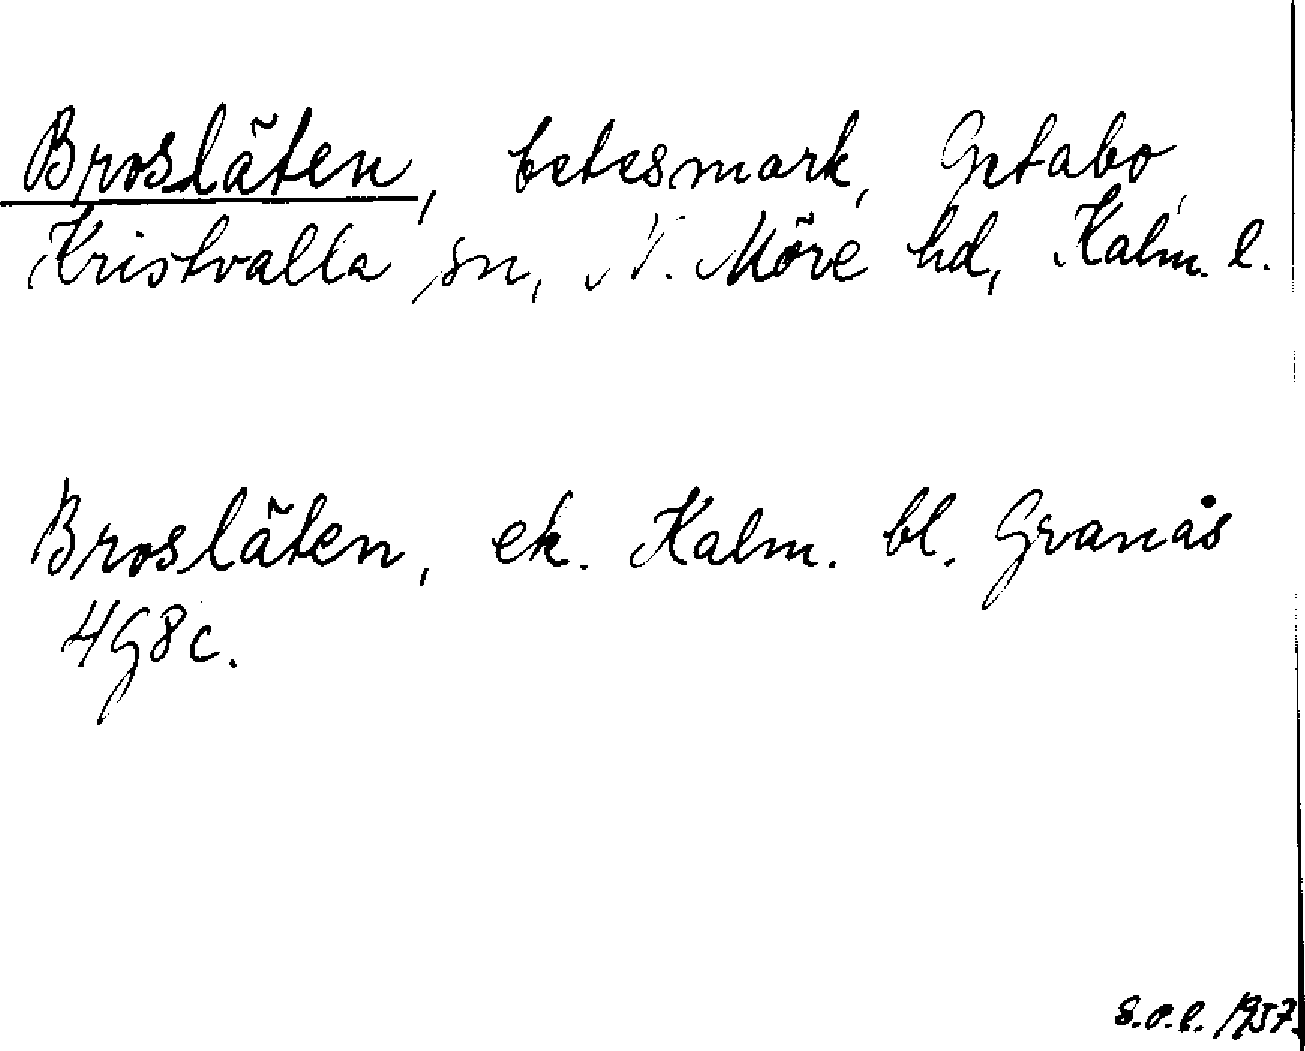 Broslãten, betesmark, Getabo,
Kristvalla sn, N. Möre hd, Kalm. l.
Broslãten, ek. Kalm. bl. Granås
4G8c.
S.O.L. 1957.